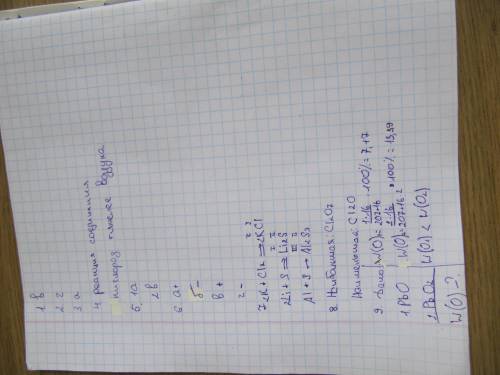 1. в
2. г
3. а
4. реакция соединения
кислород тяжелее воздуха
5. 1а
2в
6. а+
б-
в+
г-
7. 2K + Cl2 ⇒ 2KCl
Li + S ⇒ Li2S
Al + S → Al2S3
8. Наибольшая: Cl2O7
Наименьшая: Cl2O
9. Дано:
1. PbO
2. PbO2
W(O)-?
W(O)= 1·16/207+16 · 100% = 7,17
W(O)= 2·16/207+16·2 · 100% = 13,39
W(O1) < W(O2)